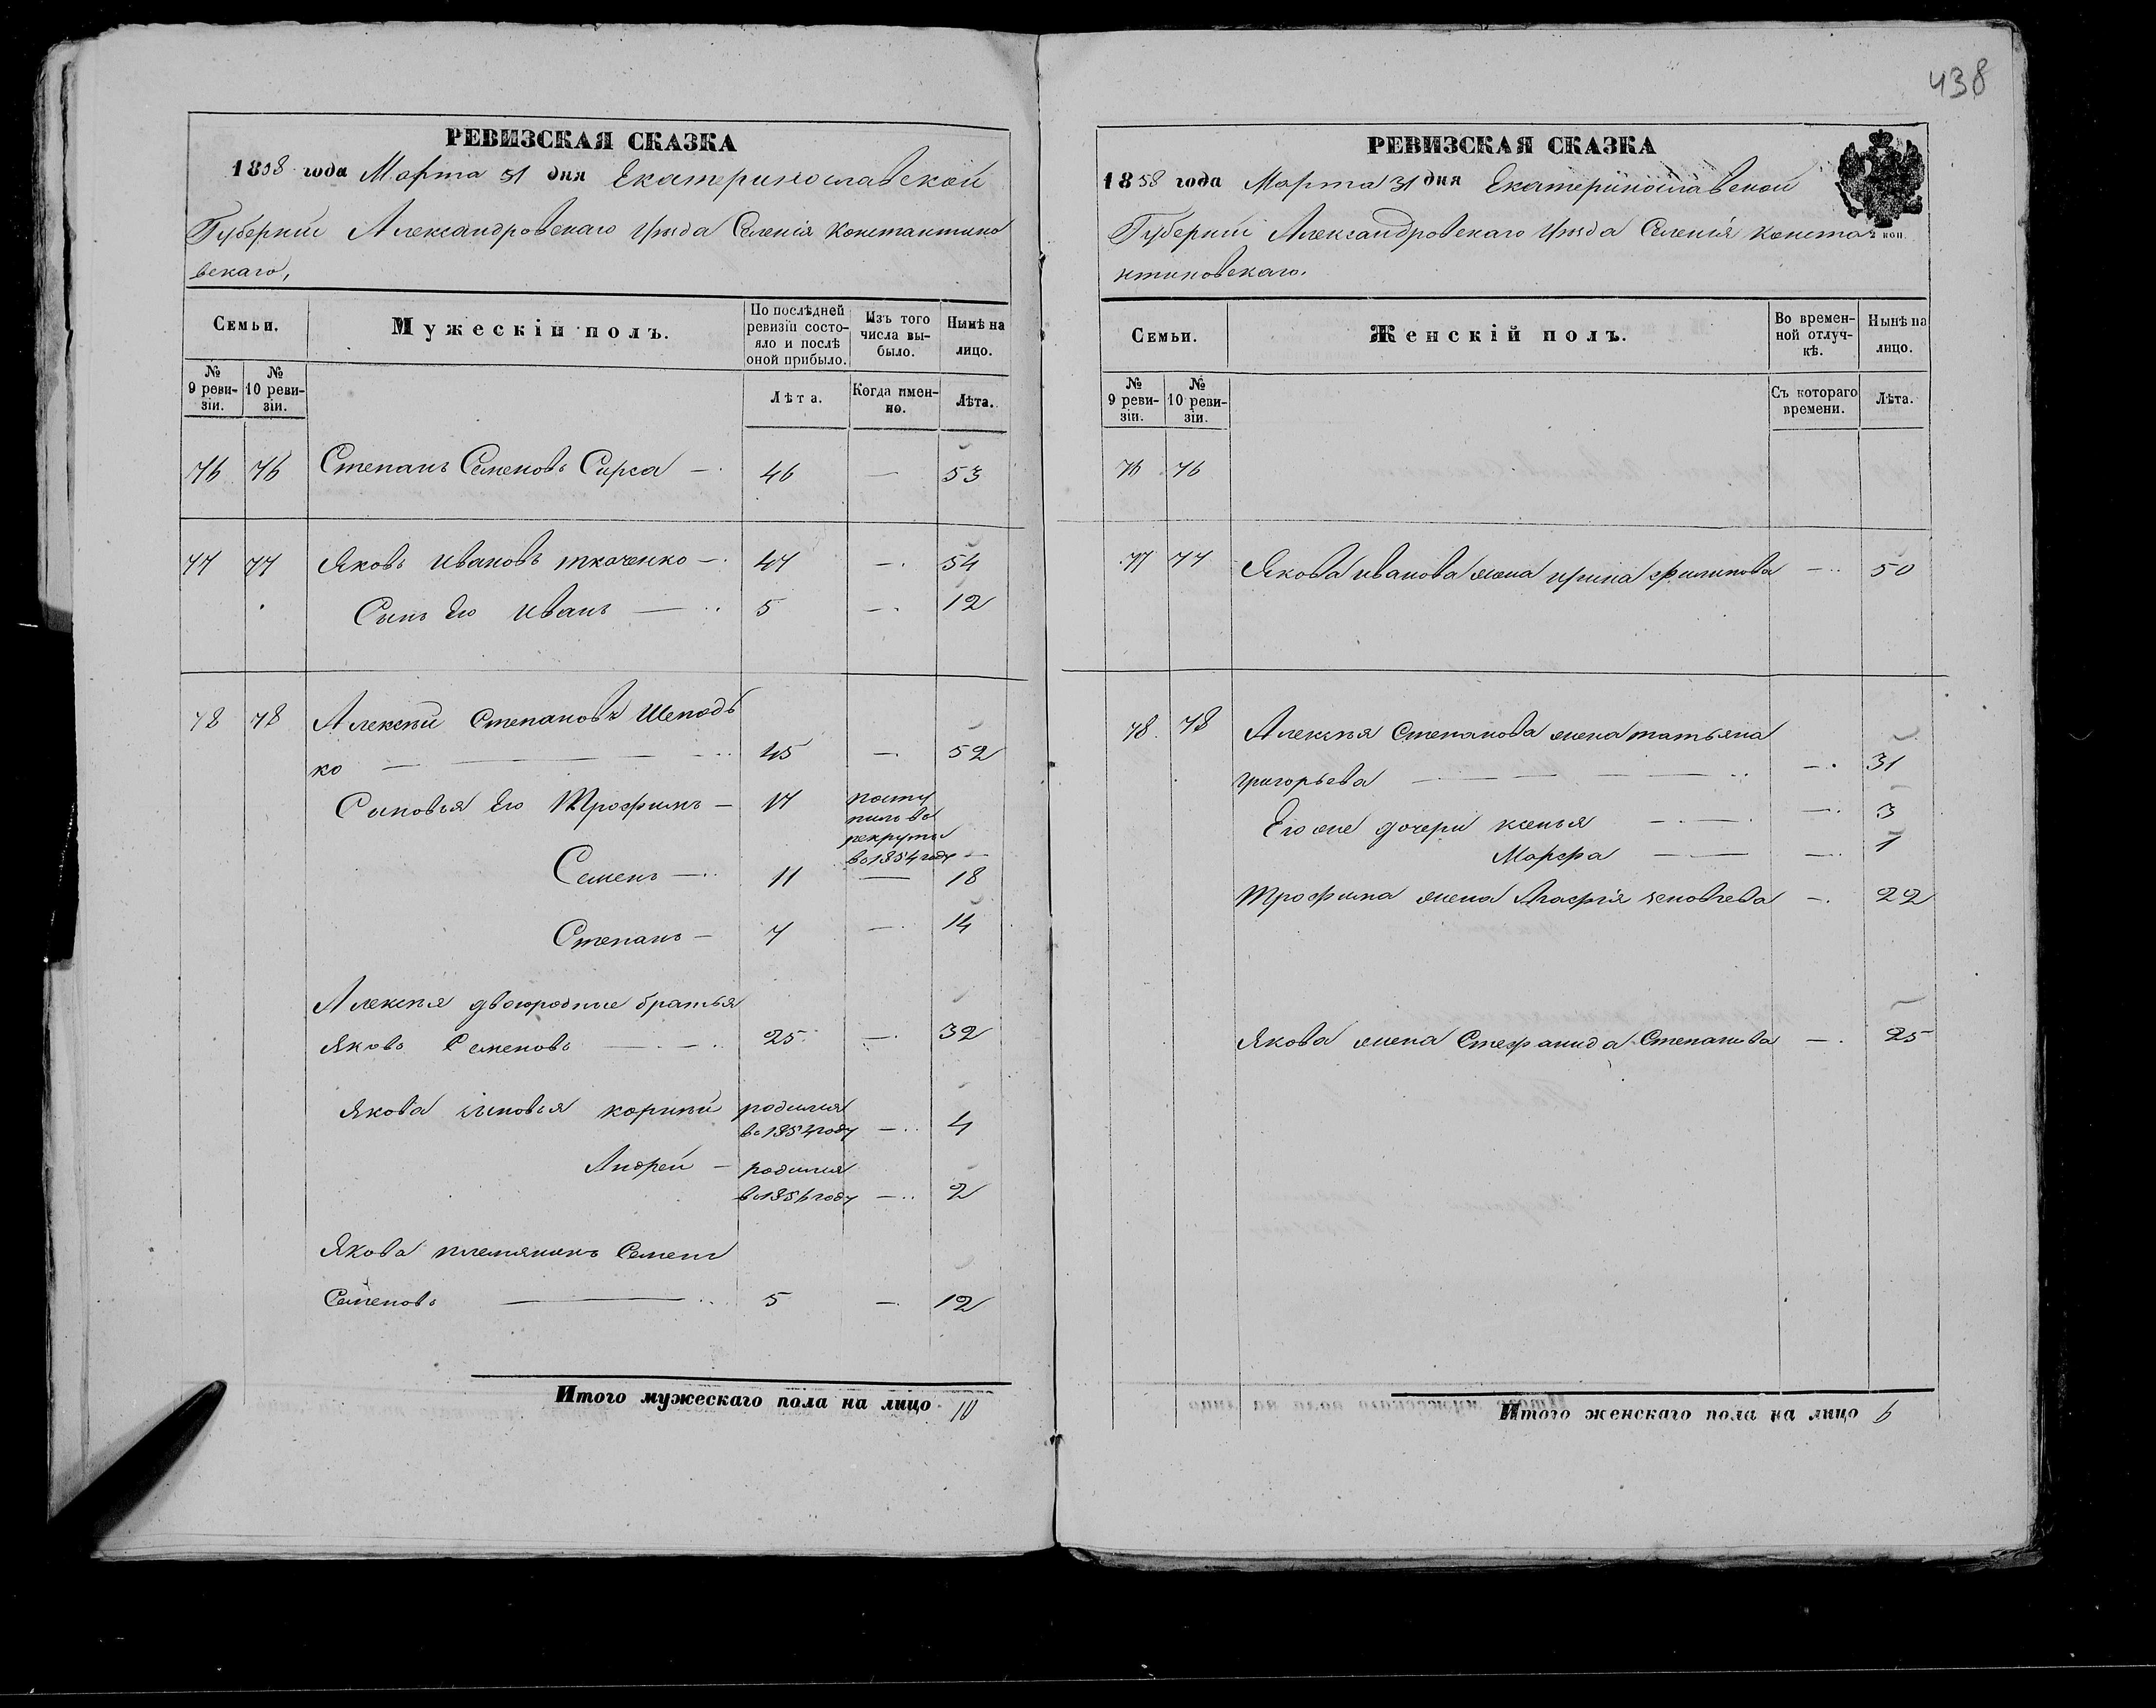 438
РЕВИЗСКАЯ СКАЗКА
1858 года Марта 31 дня Екатеринославской
Губернии Александровскаго Уѣзда Селенія Константино
вскаго,
Семьи.
Мужескій полъ.
По послѣдней ревизіи состояло и послѣ оной прибыло.
Изъ того числа выбыло.
Нынѣ на лицо.
№ 9 ревизіи.
№ 10 ревизіи.
Лѣта.
Когда именно.
Лѣта.
76 76 Степанъ Семеновъ — 46 — 53
77 77 Яковъ Ивановъ Ткаченко — 47 — 54
Сынъ Его Иванъ — 5 — 12
78 78 Алексѣй Степановъ Шеподь
ко — 45 — 52
Сыновья Его Трофимъ — 17 посту
пилъ въ
рекруты
въ 1854 году —
Семенъ — 11 — 18
Степанъ — 7 — 14
Алексѣя двоюродные братья
Яковъ Семеновъ — 25 — 32
Якова сыновья Корнѣй родился
въ 1854 году — 4
Андрей — родился
въ 1856 году — 2
Якова племяникъ Семенъ
Семеновъ — 5 — 12
Итого мужескаго пола на лицо 10
РЕВИЗСКАЯ СКАЗКА
1858 года Марта 31 дня Екатеринославской
Губерніи Александровскаго Уѣзда Селенія Конста
нтиновскаго.
2 коп.
Семьи.
Женскій полъ.
Во временной отлучкѣ.
Нынѣ на лицо.
№ 9 ревизіи.
№ 10 ревизіи.
Съ котораго времени.
Лѣта.
76 76
77 77 Якова Иванова жена Ирина Филипова — 50
78. 78 Алексѣя Степанова жена Татьяна
Григорьева — — 31
Его же дочери Ксенья — — 3
Марфа — — 1
Трофима жена Агафія — 22
Якова жена Стефанида Степанова — 25
Итого женскаго пола на лицо 6